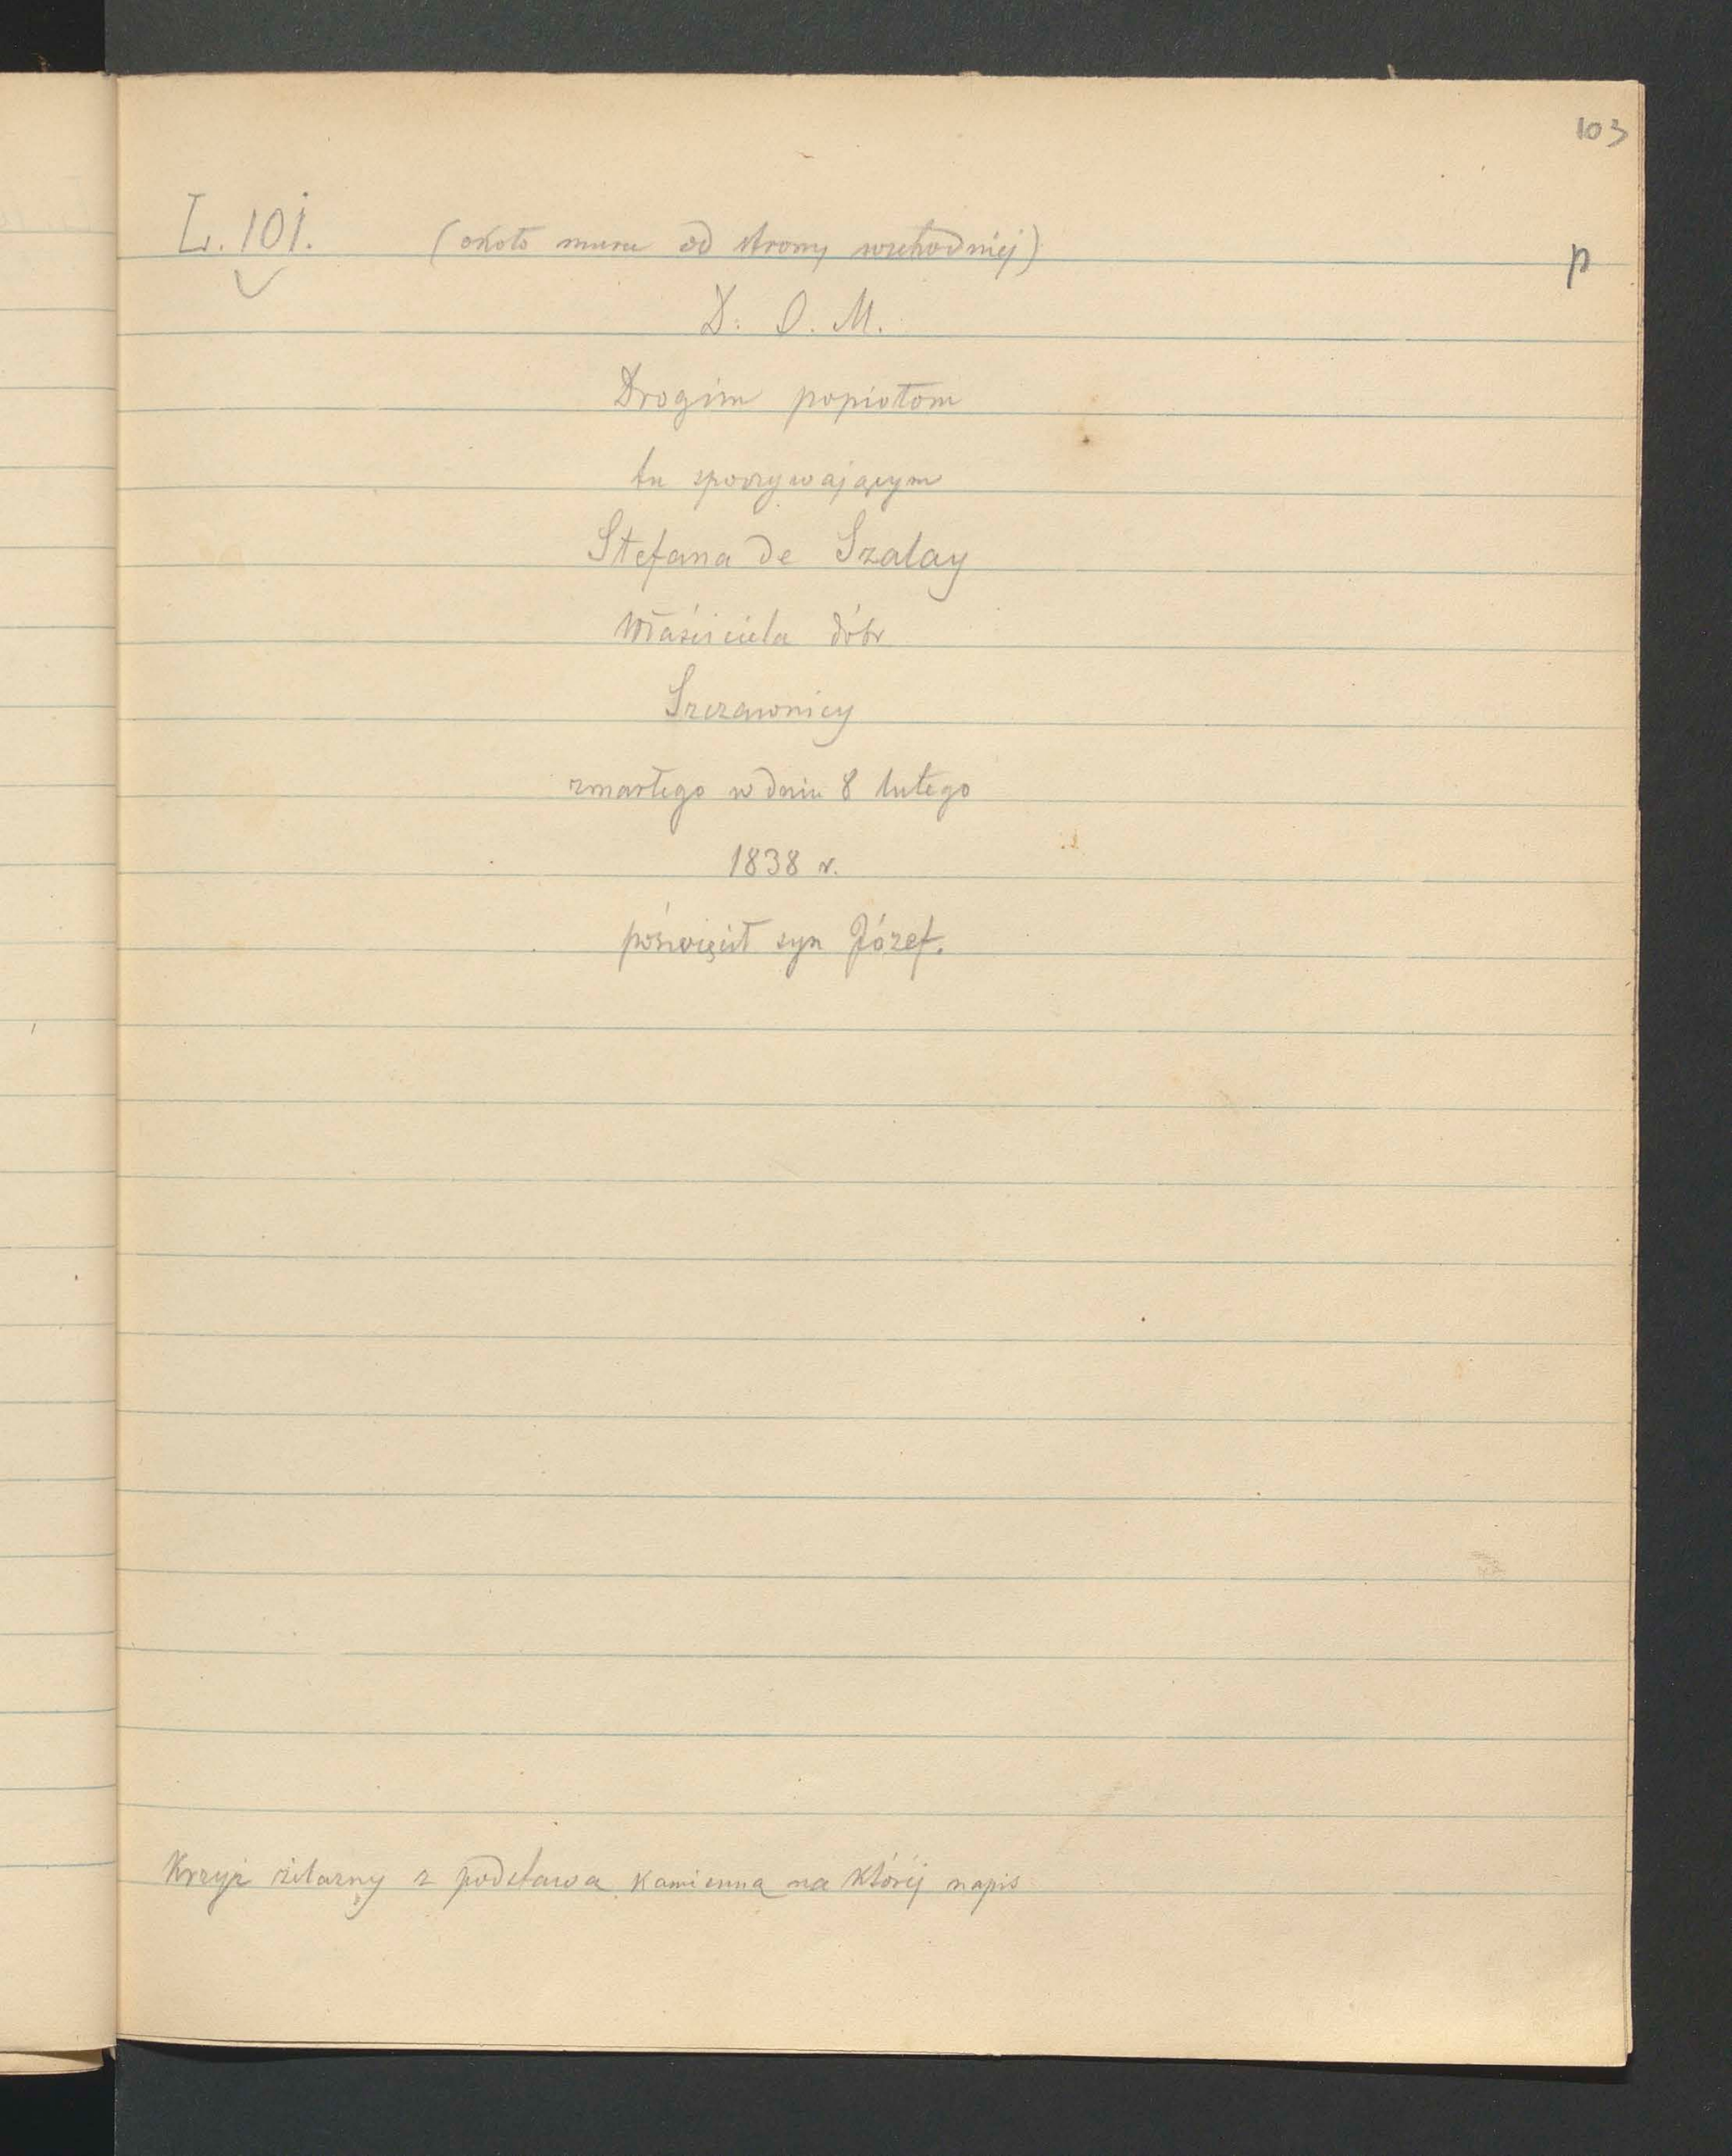 103
L. 101. (około muru od strony wschodniej)
p
D. O. M.
Drogim popiołom
tu spoczywającym
Stefana de Szalay
Właściciela dóbr
Szczawnicy
zmarłego w dniu 8 lutego
1838 r.
poświęcił syn Józef.
Krzyż żelazny z podstawa kamienną na którėj napis